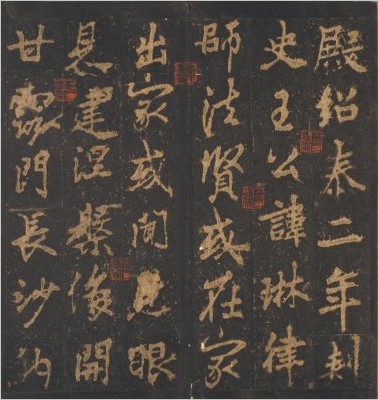 殿紹泰二年刺
史王公諱琳律
師法賢或在家
出家或聞見眼
見建涅槃像開
甘露門長沙內